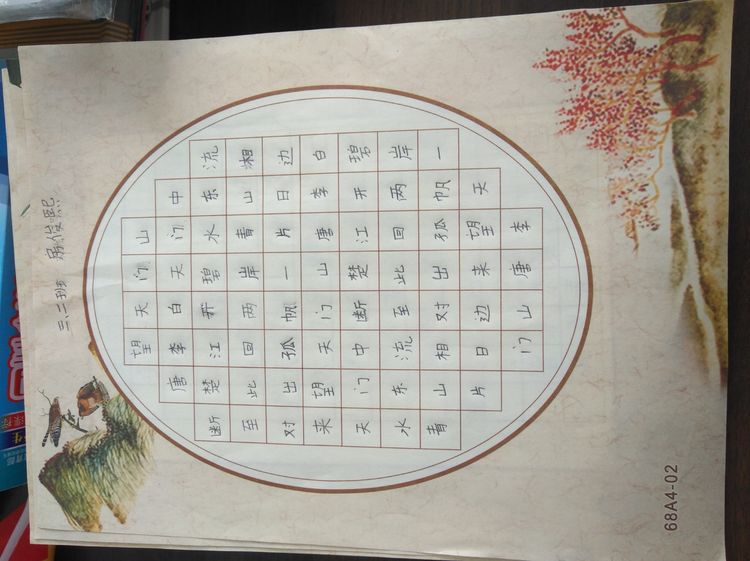 三.二班 俊熙
望天门山
唐李白天门中
断楚江开碧水东流
至此回两岸青山湘
对出孤帆一片日边
来望天门山唐李白
天门中断楚江开碧
水东流至此回两岸
青山相对出孤帆一
片日边来望天
门山唐李
68A4-02